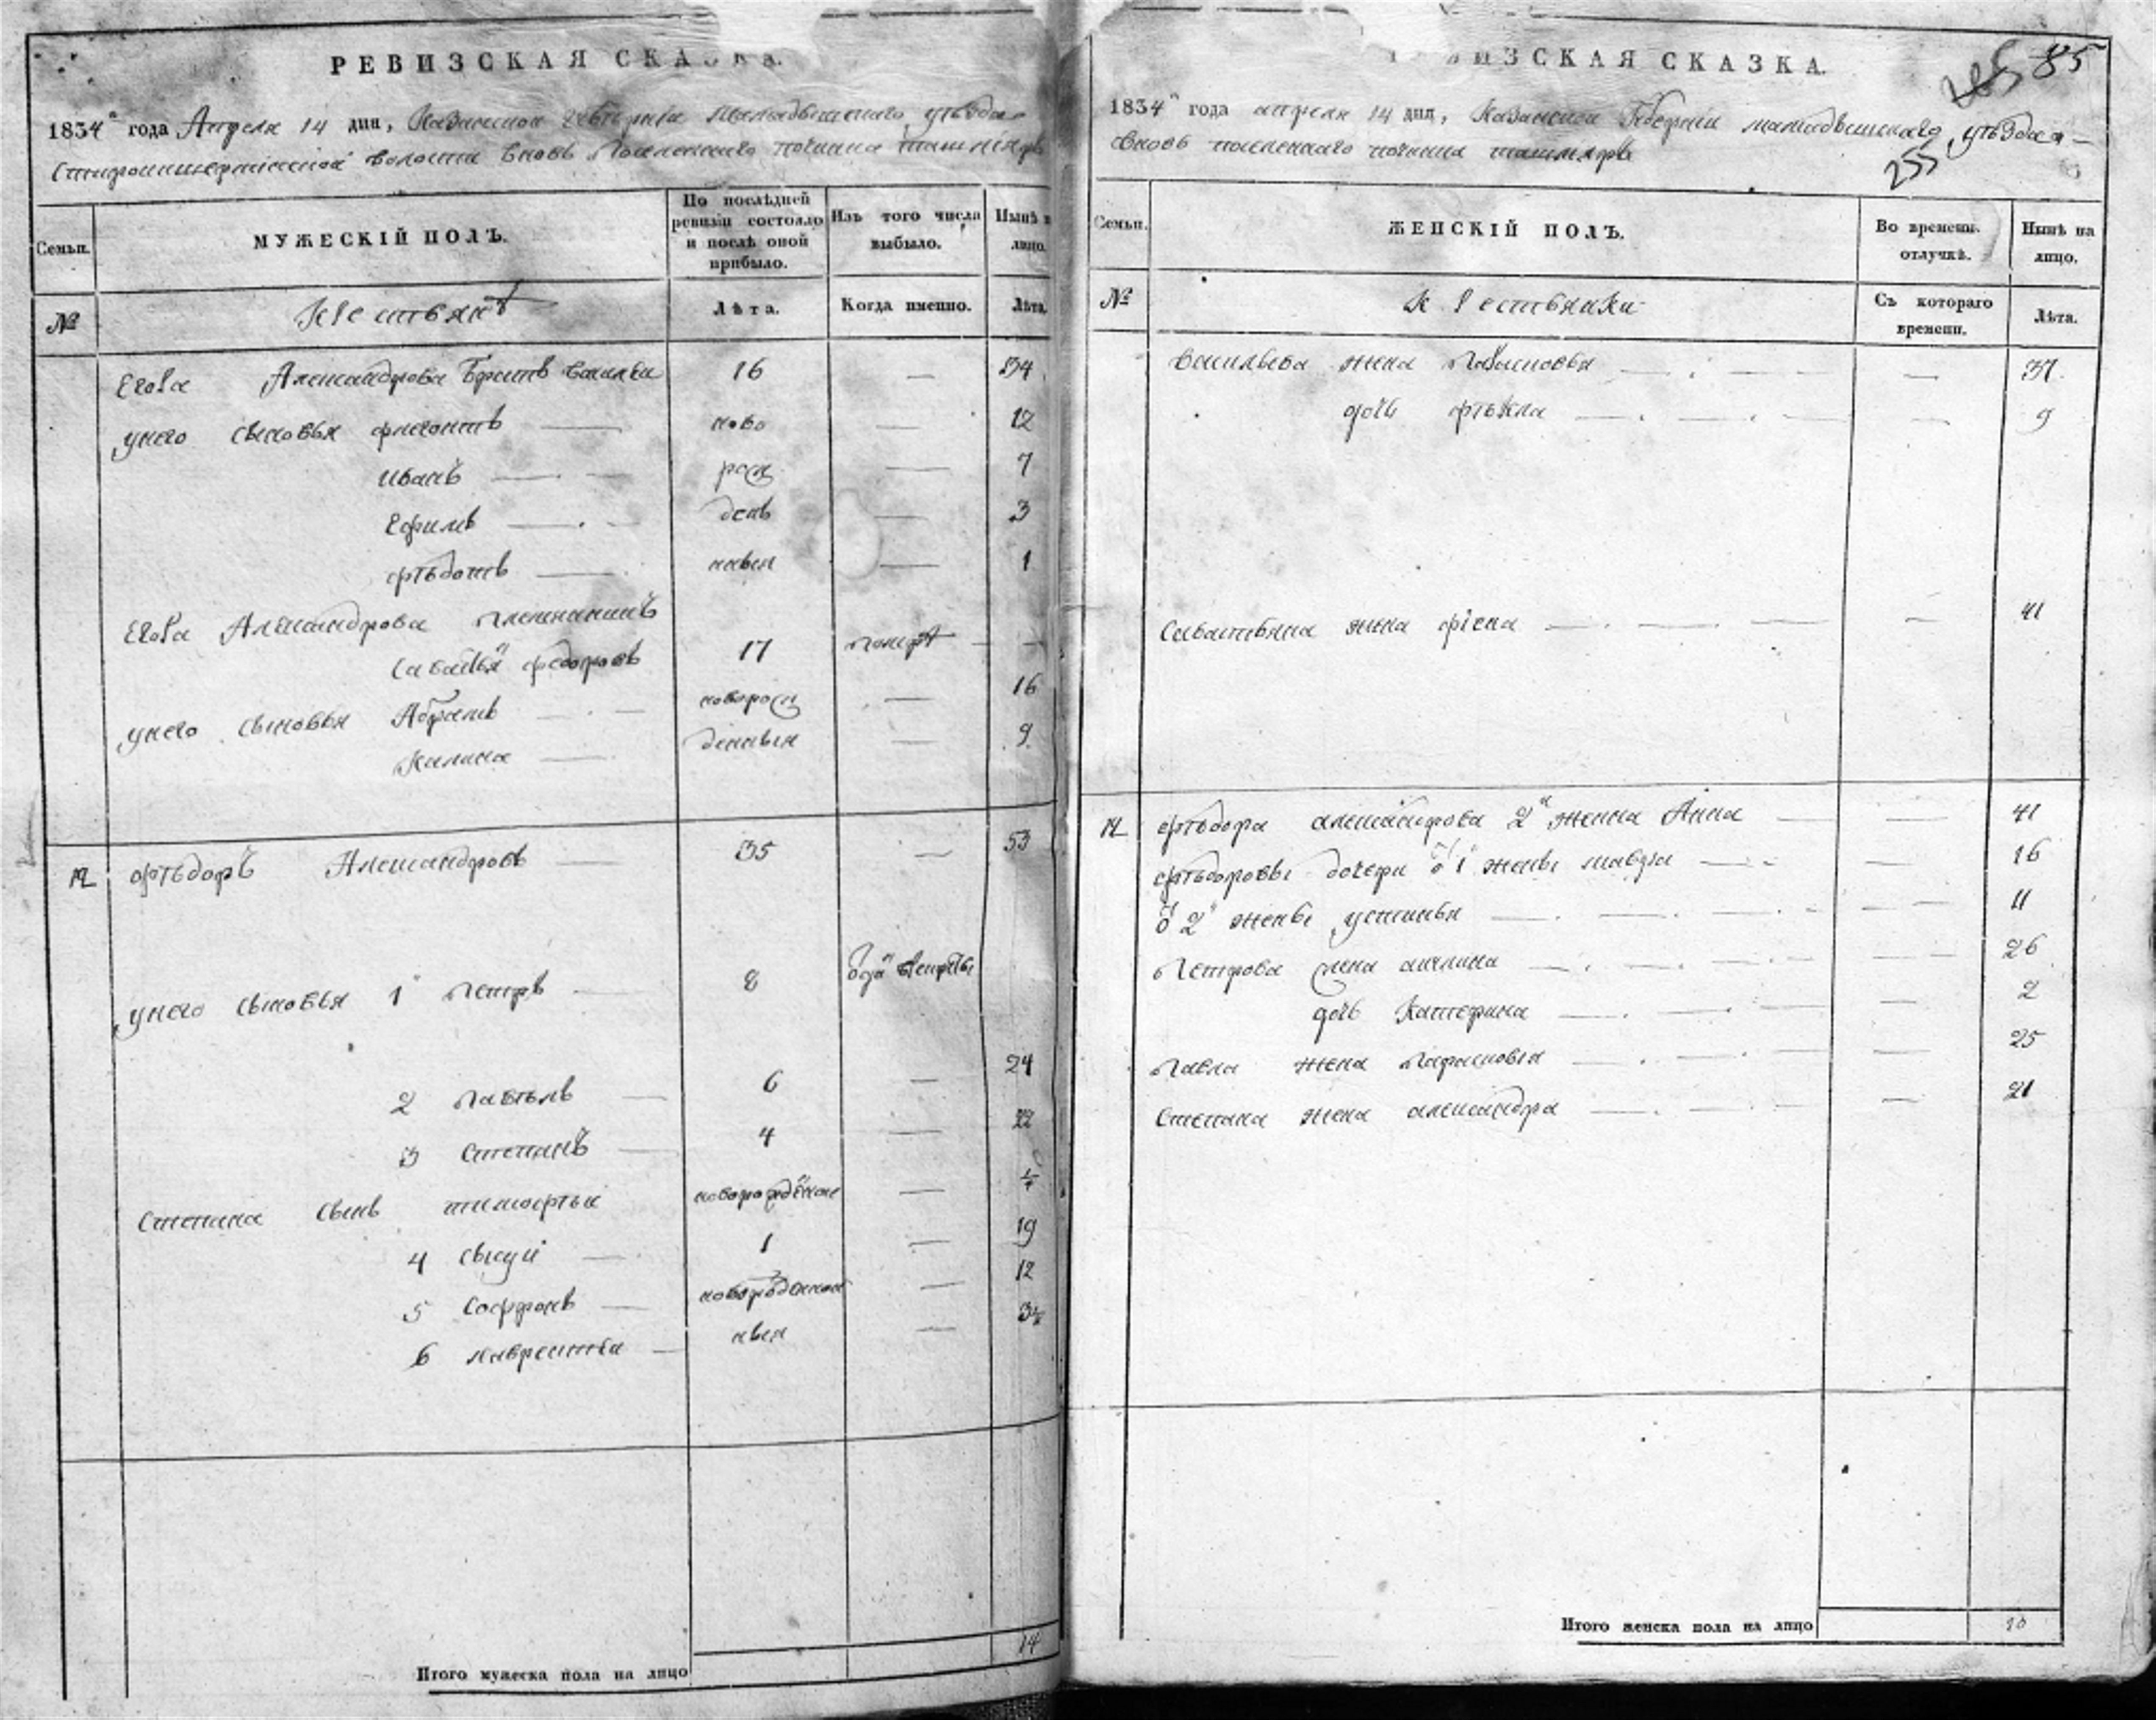 РЕВИЗСКАЯ СКАЗКА.
1834 года Апреля 14 дня, Казанской губерніи Мамадышскаго уѣзда
волости вновь поселеннаго починка
Семьи.
МУЖЕСКІЙ ПОЛЪ.
По послѣдней ревизіи состояло и послѣ оной прибыло.
Изъ того числа выбыло.
Нынѣ на лицо.
№
Крестьянъ
Лѣта.
Когда именно.
Лѣта.
Егора Александрова братъ Василеи 16 — 34
унего сыновья флегонтъ — ново — 12
иванъ — рож — 7
Ефимъ — денъ — 3
фѣдотъ — ныя — 1
Егора Александрова племянникъ
Савастья федоровъ 17 померъ —
унего сыновья Абрамъ — новорож — 16
Калина — денныя — 9
12 фѣдоръ Александровъ — 35 — 53
унего сыновья 1 Петръ — 8
2 Павѣлъ — 6 — 24
3 Степанъ — 4 — 22
Степана сынъ тимофѣй —
4 сысуй — 1 — 19
5 Софронъ — — 12
6 лаврентѣи — ныя — 3½
Итого мужеска пола на лицо 14
РЕВИЗСКАЯ СКАЗКА.
85
1834 года апреля 14 дня, Казанской Губерніи мамадышскаго уѣзда
вновь поселеннаго починка
255
Семьи.
ЖЕНСКІЙ ПОЛЪ.
Во времени. отлучкѣ.
Нынѣ на лицо.
№
Крестьянки
Съ котораго времени.
Лѣта.
Васильева жена — — 37
дочь фѣкла — — 9
жена фіена — — 41
12 фѣдора александрова 2я женна Анна — — 41
фѣдоровы дочери о 1 жены мавра — — 16
о 2 жены устинья — — 11
Петрова жена акилина — — 26
дочь Катерина — — 2
Павла жена Парасковья — — 25
Степана жена александра — — 21
Итого женска пола на лицо 10